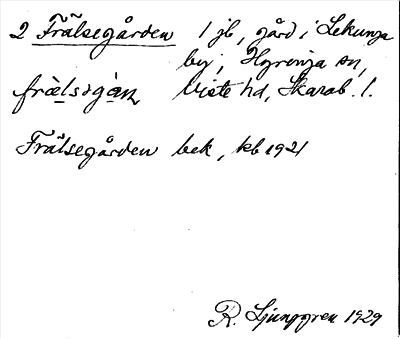 2 Frälsegården 1 jb, gård i Lekunga
by, Hyringa sn,
Viste hd, Skarab. l.
Frälsegården bek, kb 1921
R. Ljunggren 1929